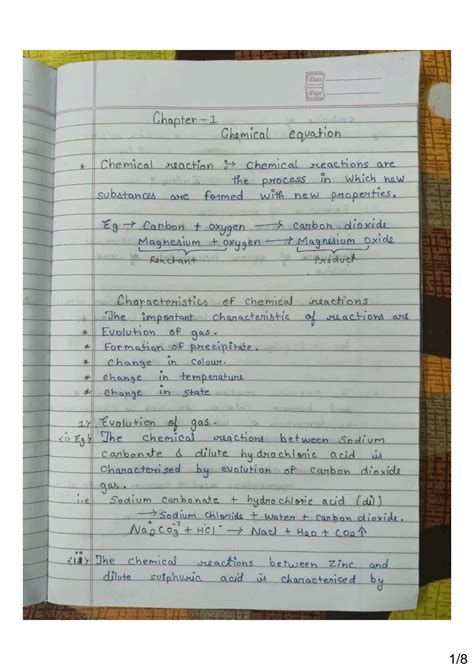 Date
Page
Chapter - 1
Chemical equation
* Chemical reaction :→ Chemical reactions are
the process in which new
substances are formed with new properties.
Eg → Carbon + oxygen ⟶ carbon dioxide
Magnesium + oxygen ⟶ Magnesium Oxide
Reactant Product
Characteristics of chemical reactions
The important characteristic of reactions are
* Evolution of gas.
* Formation of precipitate.
* change in colour.
* change in temperature
* change in state
1.) Evolution of gas.
(i) Eg The chemical reactions between Sodium
carbonate & dilute hydrochloric acid is
characterised by evolution of carbon dioxide
gas.
i.e Sodium carbonate + hydrochloric acid (dil)
⟶ Sodium chloride + water + carbon dioxide.
Na₂⁺CO₃⁻² + HCl⁻ ⟶ Nacl + H₂O + CO₂↑
(ii) The chemical reactions between zinc and
dilute sulphuric acid is characterised by
1/8